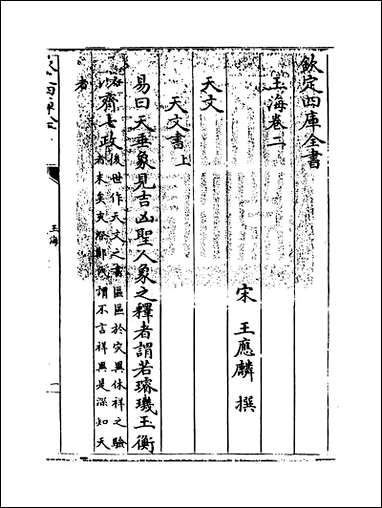 欽定四庫全書
玉海卷二
宋 王應麟 撰
天文
天文書上
易曰天垂象見吉凶聖人象之釋者謂若璿璣玉衡
以齊七政
後世作天文之書區區於災異休祥之驗
者末矣夾漈鄭氏謂不言祥異是深知天
者
玉海
一